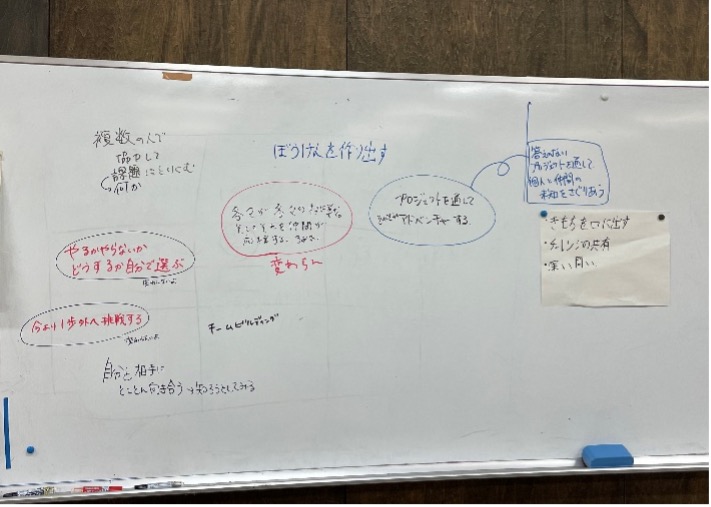 複数の人で
協力して
課題にとりくむ
何か
ぼうけんを作り出す
やるかやらないか
どうするか自分で選ぶ
今より1歩外へ挑戦する
チームビルディング
自分と相手に
とことん向き合う→知ろうとしてみる
変わらん
プロジェクトを通して
アドベンチャーする
答えのない
プロジェクトを通して
個人と仲間の
未知をさぐりあう
きもちを口に出す
・チャレンジの共有